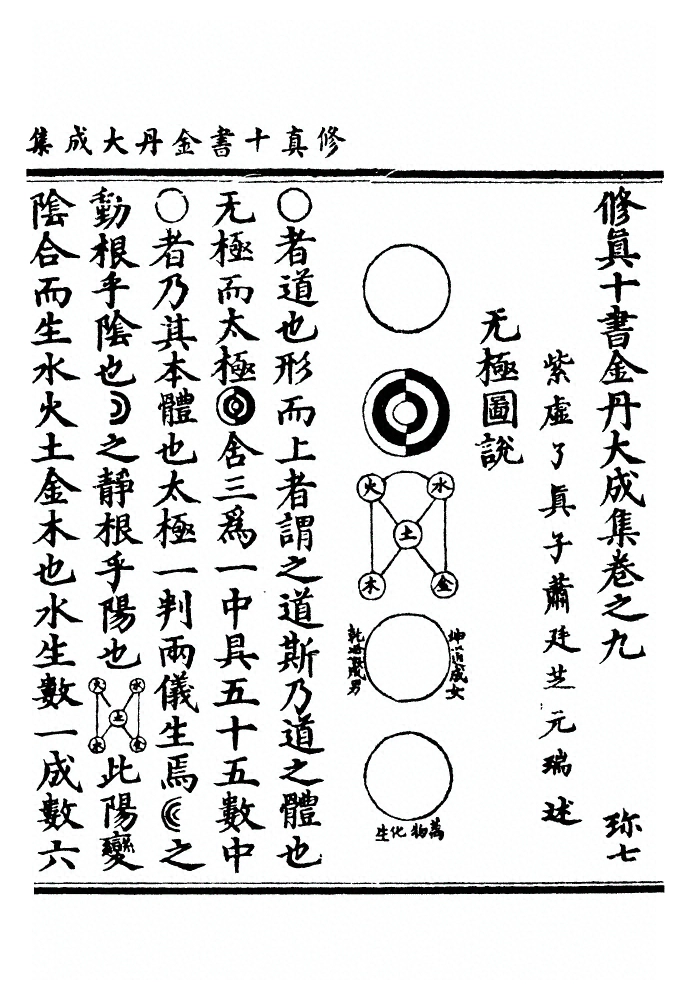 修真十書金丹大成集
修真十書金丹大成集卷之九 珎七
紫虛了真子蕭廷芝元瑞述
无極圖說
火 水
土
木 金
坤道成女
乾道成男
萬物化生
○者道也形而上者謂之道斯乃道之體也
无極而太極含三爲一中具五十五數中
○者乃其本體也太極一判兩儀生焉之
動根乎陰也之靜根乎陽也火水土木金此陽變
陰合而生水火土金木也水生數一成數六